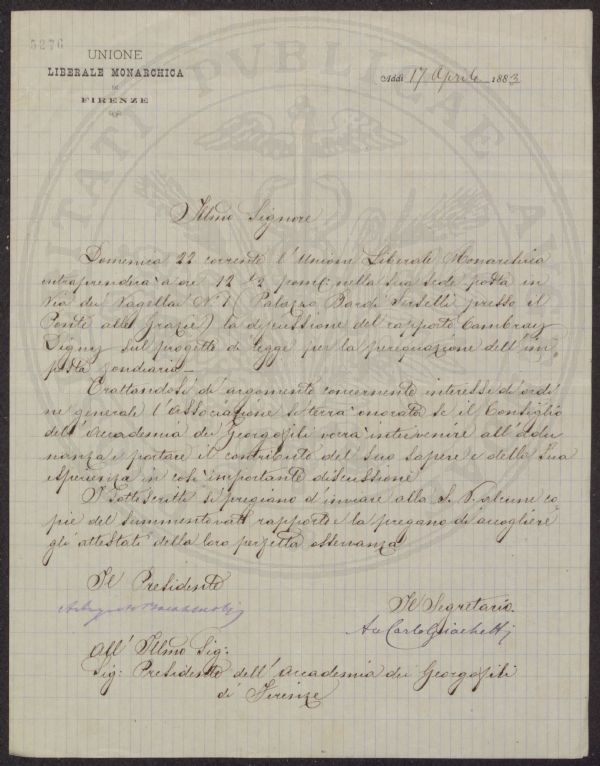 5276
UNIONE
LIBERALE MONARCHICA
DI
FIRENZE
Addì 17 Aprile 1883
PUBLICAE
Illmo Signore
Domenica 22 corrente l'Unione Liberale Monarchica
intraprenderà a ore 12 1/2 pom: nella sua sede posta in
Via dei Vagellai N. 1 (Palazzo Bardi Serzelli presso il
Ponte alle Grazie) la discussione del rapporto Cambray
Digny sul progetto di legge per la perequazione dell'im
posta fondiaria.
Trattandosi di argomento concernente interessi di ordi
ne generale l'Associazione si terrà onorata se il Consiglio
dell'Accademia dei Georgofili vorrà intervenire all'adu
nanza e portare il contributo del Suo sapere e della Sua
esperienza in così importante discussione.
I sottoscritti si pregiano d'inviare alla S. V. alcune co
pie del summentovato rapporto e la pregano di accogliere
gli attestati della loro perfetta osservanza.
Il Presidente
Il Segretario
Carlo Giachetti
All' Illmo Sig:
Sig: Presidente dell'Accademia dei Georgofili
di Firenze